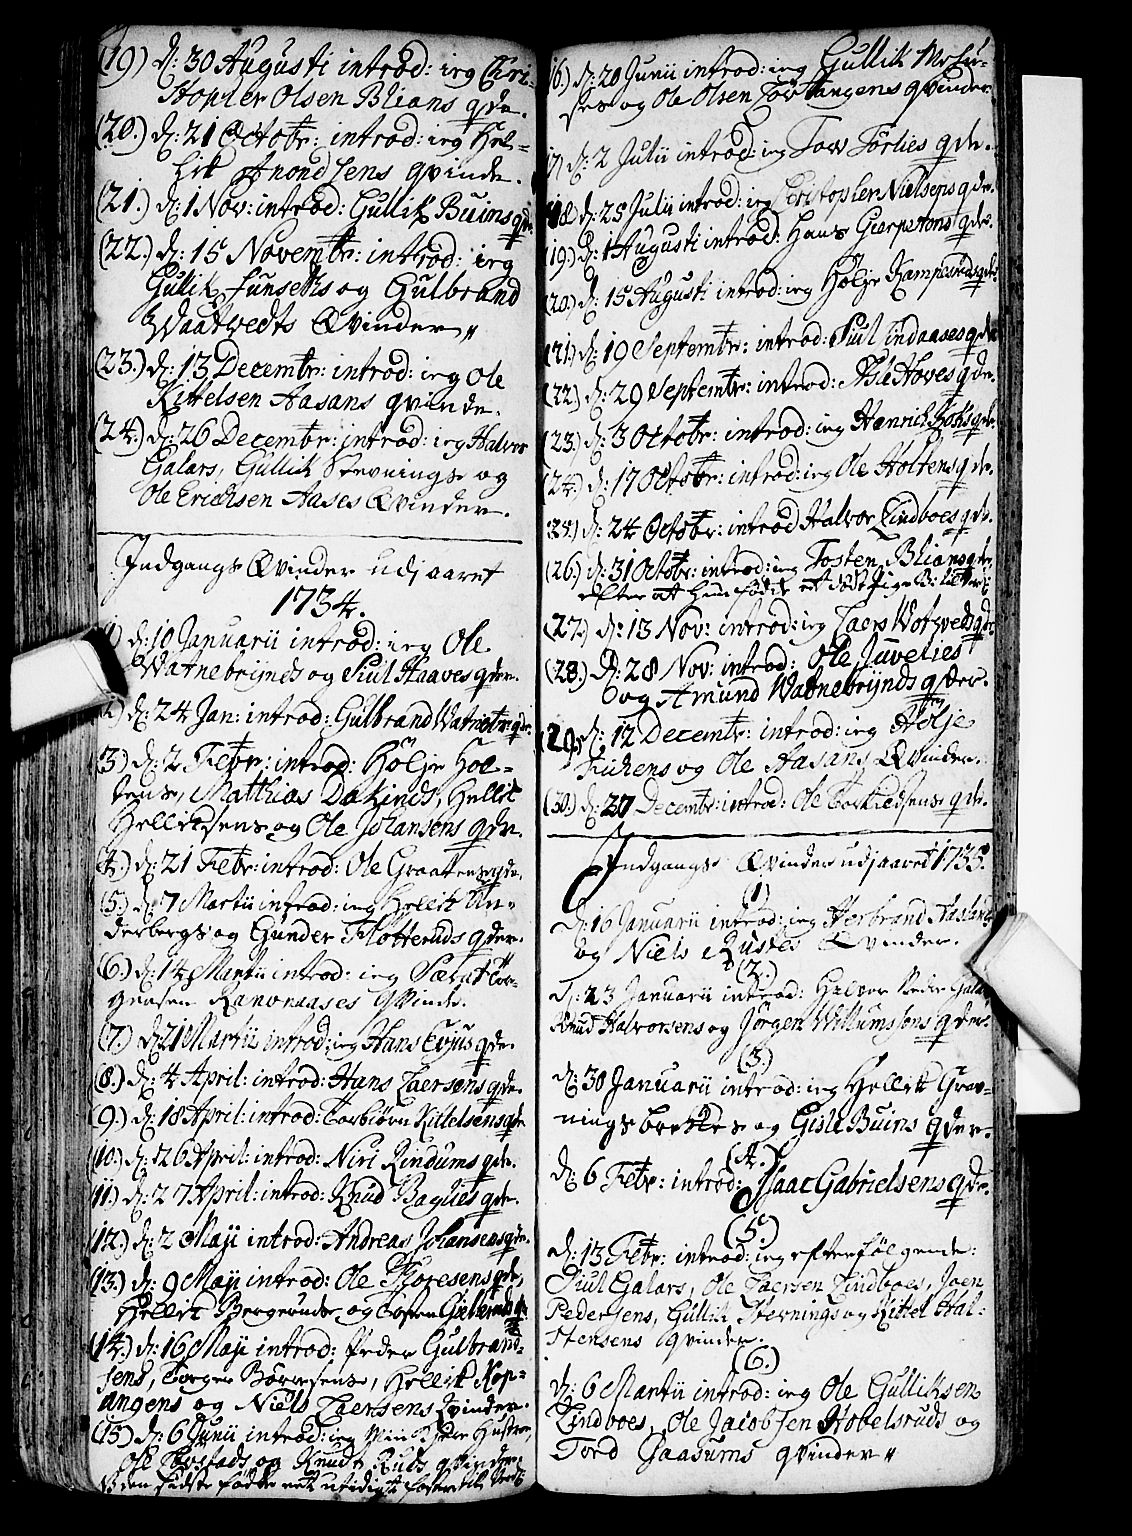 (19) d: 30 Augusti introd: ieg Chri-
stopher Olsen Blians qde.
(20.) d: 21 Octobr: introd: ieg Hel-
lik Anondsens qvinde.
(21.) d: 1 Nov: introd: Gullik Buins qde.
(22.) d: 15 Novembr: introd: ieg
Gulik Funseths og Gulbrand
Waatvedts Qvinder
(23.) d: 13 Decembr: introd: ieg Ole
Kittelsen Aasans qvinde.
(24.) d: 26 Decembr: introd: ieg Halvor
Galaas, Gullik Stevnings og
Ole Erichsen Aases Qvinder.
Indgangs Qvinder udj aaret
1734.
1) d: 10 Januarii introd: ieg Ole
Watnebrynds og Siul Haaves qder.
2) d: 24 Jan: introd: Gulbrand Watnebr: qde.
3) d: 2 Febr: introd: Hölje Hol-
tens, Matthias Dokinds, Hellik
Helliksens og Ole Johansens qdr.
4.) d: 21 Febr: introd: Ole Graatens qde.
(5.) d: 7 Martii introd: ieg Hellik Un-
derbergs og Gunder Flötteruds qder.
(6.) d: 14 Martii introd: ieg
Ravnaases qvinde.
(7.) d: 21 Martii introd: ieg Hans Evjus qde.
(8.) d: 4 April: introd: Hans Laersens qde.
(9.) d: 18 April: introd: Torbiörn Kittelsens qde
(10.) d: 26 April: introd: Niri Rindums qde.
11.) d: 27 April: introd: Knud Bagaas qde.
(12.) d: 2 Maji introd: Andreas Johansens qde.
(13.) d: 9 Maji introd: Ole Thoresens qde,
Hellik Bergerunds og Tosten
(14.) d: 16 Maji introd: Peder Gulbrand-
sens, Torger Börresens, Hellik Kop-
angens og Niels Laersens Qvinder.
(15) d: 6 Junii introd: ieg Min Kiere Hustroe,
Ole Tvestads og Knud Ruds qvinder.
NB den sidste födde et utidigt foster til Verden
16.) d: 20 Junii introd: ieg Gullik Mofu-
ses og Ole Olsen Torstangens qvinder.
17) d: 2 Julii introd: ieg Tov Törlies qde.
18) d: 25 Julii introd: ieg Christopher Nielsens qde.
(19.) d: 1 Augusti introd: Hans Gierpetons qde.
(20.) d: 15 Augusti introd: ieg Hölje Kampesveds qde
(21.) d: 19 Septembr: introd: Siul Lindaases qde
(22.) d: 29 Septembr: introd: Asle Hoves qde.
(23.) d: 3 Octobr: introd: ieg Henrich Koks qde.
(24.) d: 17 Octobr: introd: ieg Ole Holtens qde.
25.) d: 24 Octobr: introd Halvor Lindboes qde.
(26.) d: 31 Octobr: introd: ieg Tosten Blians qde,
efter at hun födde et död Pige B: til Verd:
(27.) d: 13 Nov: introd: ieg Laers Wotveds qde.
(28.) d: 28 Nov: introd: Ole Juvelies
og Amund Watnebrynds qder.
(29.) d: 12 Decembr: introd: ieg Hölje
Fickens og Ole Aasans Qvinder.
(30.) d: 27 Decembr: introd: Ole Torkildsens qde.
Indgangs Qvinder udj aaret 1735.
(1)
D: 16 Januarii introd: ieg Herbrand Haslands
og Niels Rustes Qvinder.
(2.)
D: 23 Januarii introd: Halvor
Knud Halvorsens og Jörgen Willumssöns qder.
(3.)
D: 30 Januarii introd: ieg Hellik Grav-
ningsbrekkes og Gisle Buins qder.
(4.)
D: 6 Febr: introd: Isaac Gabrielsens qde.
(5.)
d: 13 Febr: introd: ieg efterfölgende:
Siul Galaas, Ole Laersen Lindboes, Joen
Pedersens, Gullik Stevnings og Kittel Hal-
stensens qvinder.
(6.)
D: 6 Martii introd: ieg Ole Gulliksen
Lindboes, Ole Jacobsen Hobelsruds og
Tord Gaasums qvinder